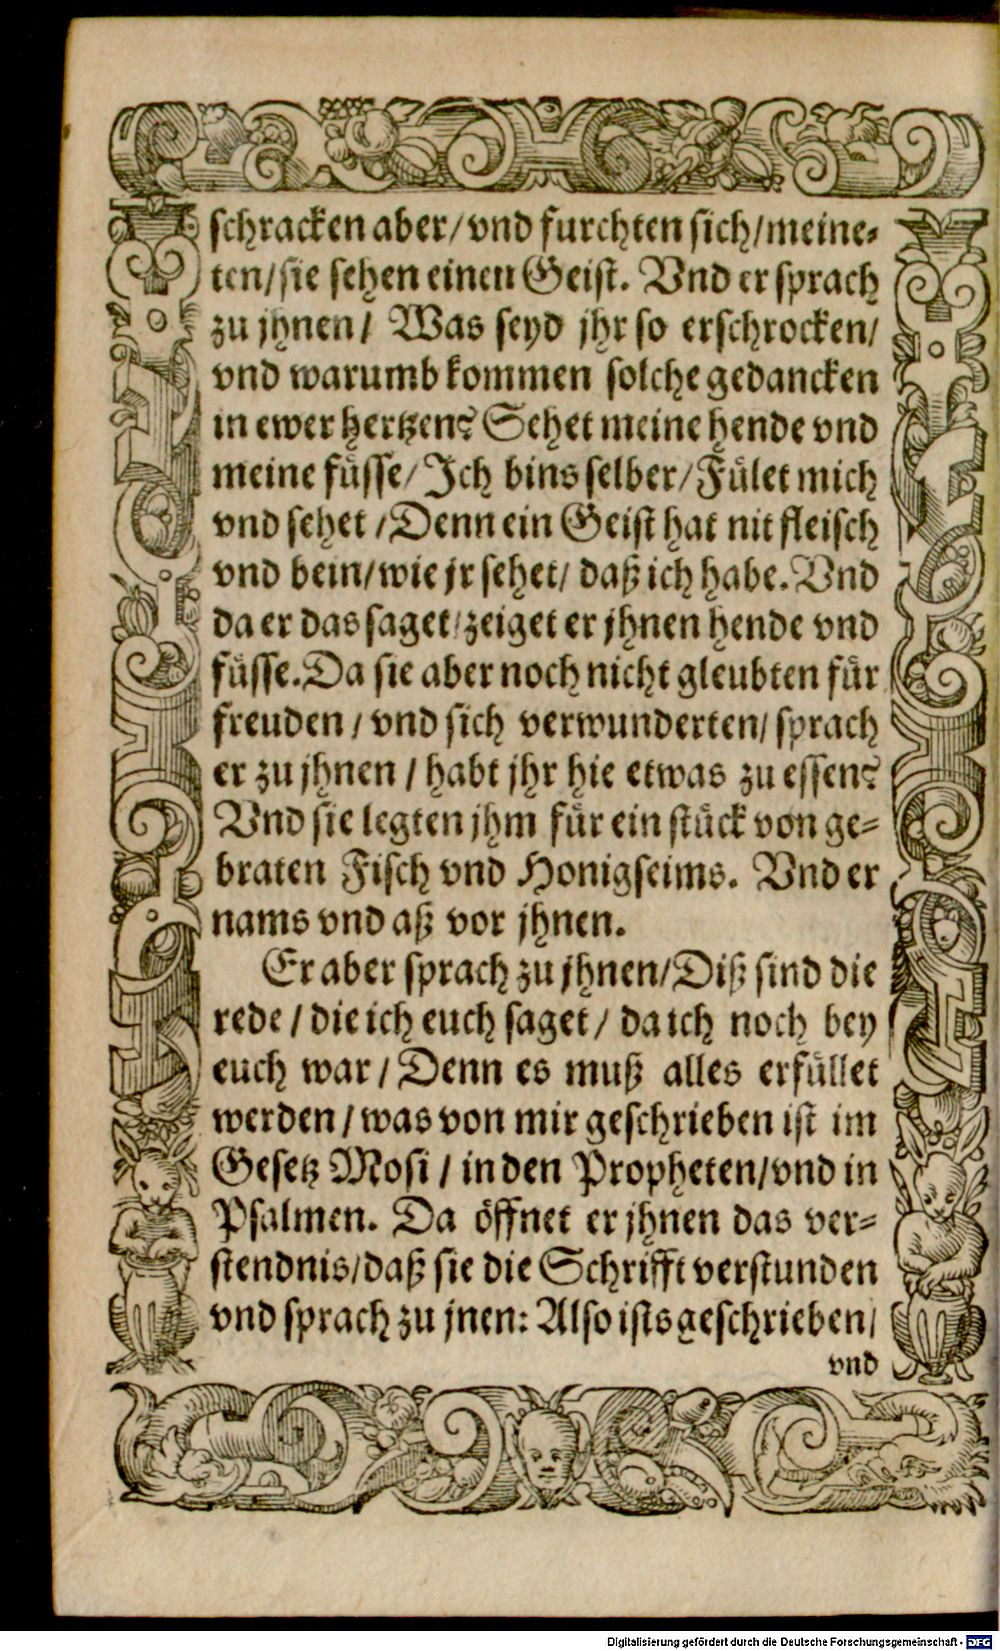 schracken aber/ vnd furchten sich/ meine-
ten/ sie sehen einen Geist. Vnd er sprach
zu jhnen/ Was seyd jhr so erschrocken/
vnd warumb kommen solche gedancken
in ewer hertzen? Sehet meine hende vnd
meine füsse/ Ich bins selber/ Fület mich
vnd sehet/ Denn ein Geist hat nit fleisch
vnd bein/ wie jr sehet/ daß ich habe. Vnd
da er das saget/ zeiget er jhnen hende vnd
füsse. Da sie aber noch nicht gleubten für
freuden/ vnd sich verwunderten/ sprach
er zu jhnen/ habt jhr hie etwas zu essen?
Vnd sie legten jhm für ein stück von ge-
braten Fisch vnd Honigseims. Vnd er
nams vnd aß vor jhnen.
Er aber sprach zu jhnen/ Diß sind die
rede/ die ich euch saget/ da ich noch bey
euch war/ Denn es muß alles erfüllet
werden/ was von mir geschrieben ist im
Gesetz Mosi/ in den Propheten/ vnd in
Psalmen. Da öffnet er jhnen das ver-
stendnis/ daß sie die Schrifft verstunden
vnd sprach zu jnen: Also ists geschrieben/
vnd
Digitalisierung gefördert durch die Deutsche Forschungsgemeinschaft - DFG